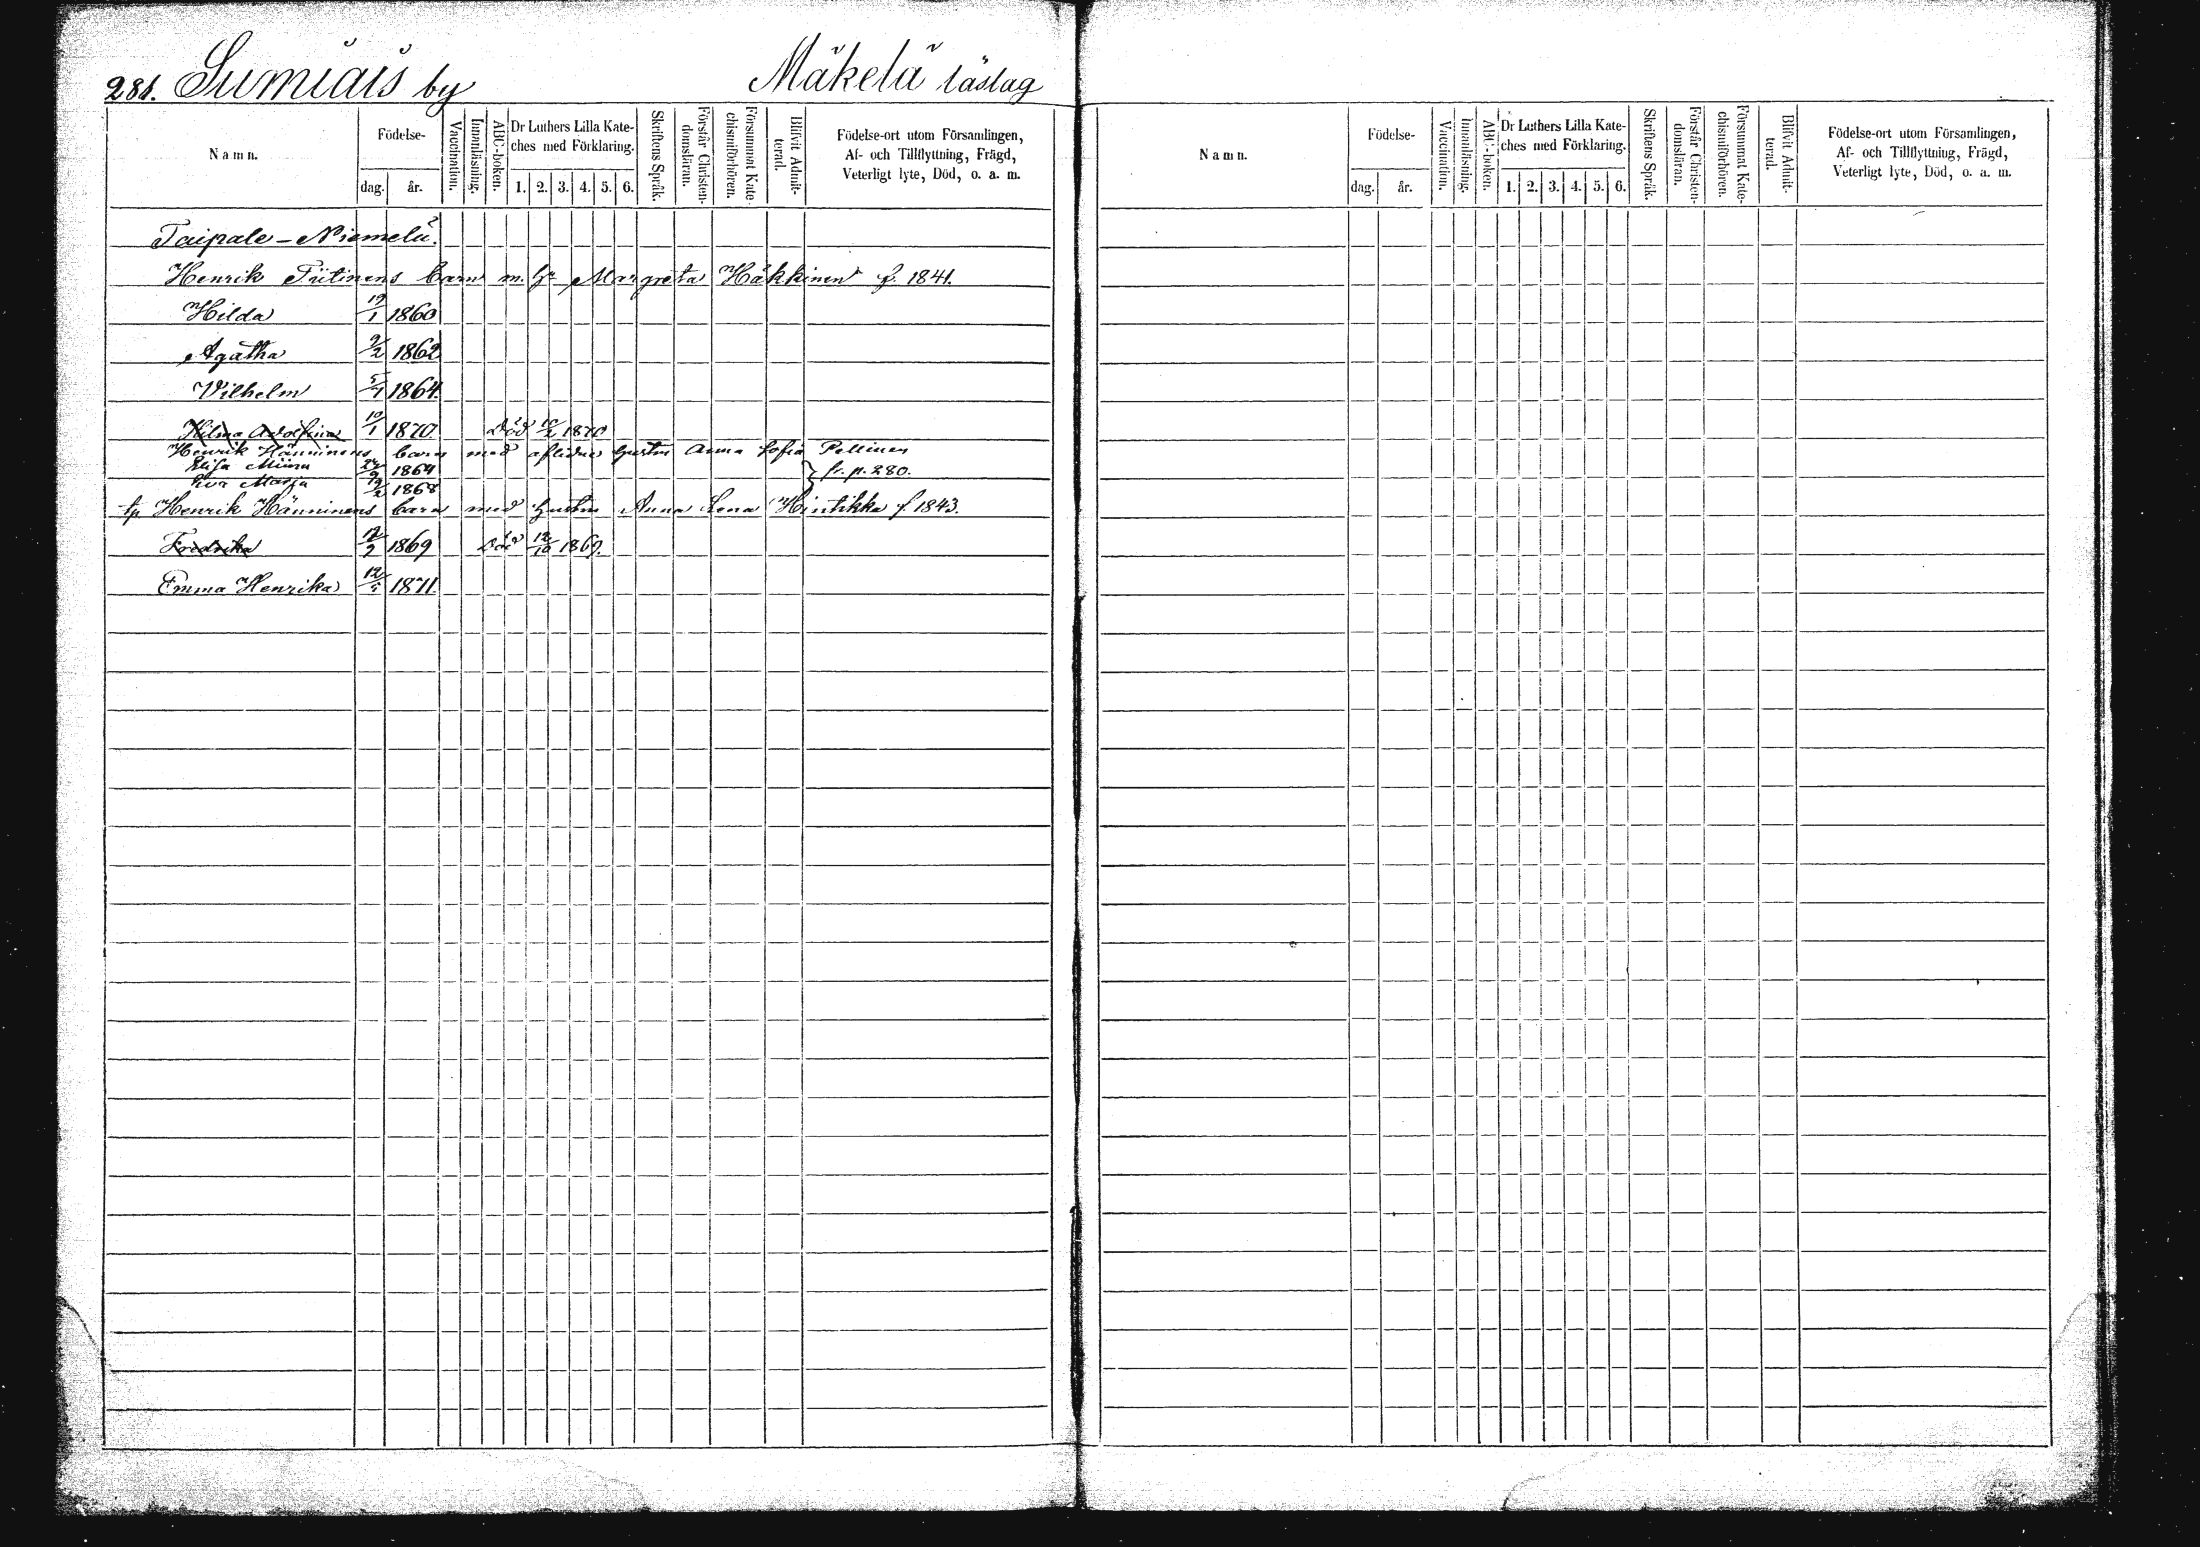 281. Sumiais by Mäkelä läslag
Namn.
Födelse-
dag. år.
Vaccination.
Innanläsning.
ABC-boken.
Dr Luthers Lilla Kate-
ches med Förklaring.
1. 2. 3. 4. 5. 6.
Skriftens Språk.
Förstår Christen-
domsläran.
Försummat Kate-
chismiförhören.
Blifvit Admit-
terad.
Födelse-ort utom Församlingen,
Af- och Tillflyttning, Frägd,
Veterligt lyte, Död, o. a. m.
Taipale-Niemelä.
Henrik Tiitinens barn m. hr Margreta Häkkinen f. 1841.
Hilda 19/1 1860
Agatha 9/2 1862
Vilhelm 5/4 1864.
Hilma Adolfina 10/1 1870 död 10/2 1870
Henrik Hänninens barn med aflidne hustru Anna Sofia Pellinen
Elisa Miina 24/9 1864 } fr. p. 280.
Eva Marja 19/2 1868
Henrik Hänninens barn med hustru Anna Lena Hintikka f 1843.
Fredrika 12/9 1869 död 12/10 1869.
Emma Henrika 12/5 1871.
Namn.
Födelse-
dag. år.
Vaccination.
Innanläsning.
ABC-boken.
Dr Luthers Lilla Kate-
ches med Förklaring.
1. 2. 3. 4. 5. 6.
Skriftens Språk.
Förstår Christen-
domsläran.
Försummat Kate-
chismiförhören.
Blifvit Admit-
terad.
Födelse-ort utom Församlingen,
Af- och Tillflyttning, Frägd,
Veterligt lyte, Död, o. a. m.